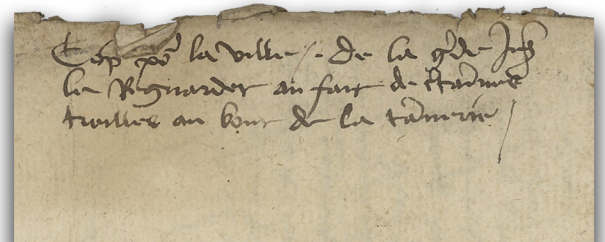 Cop po la ville / . de la gde Jug
le Regnardet au fait de
treilles au bout de la tanerie /